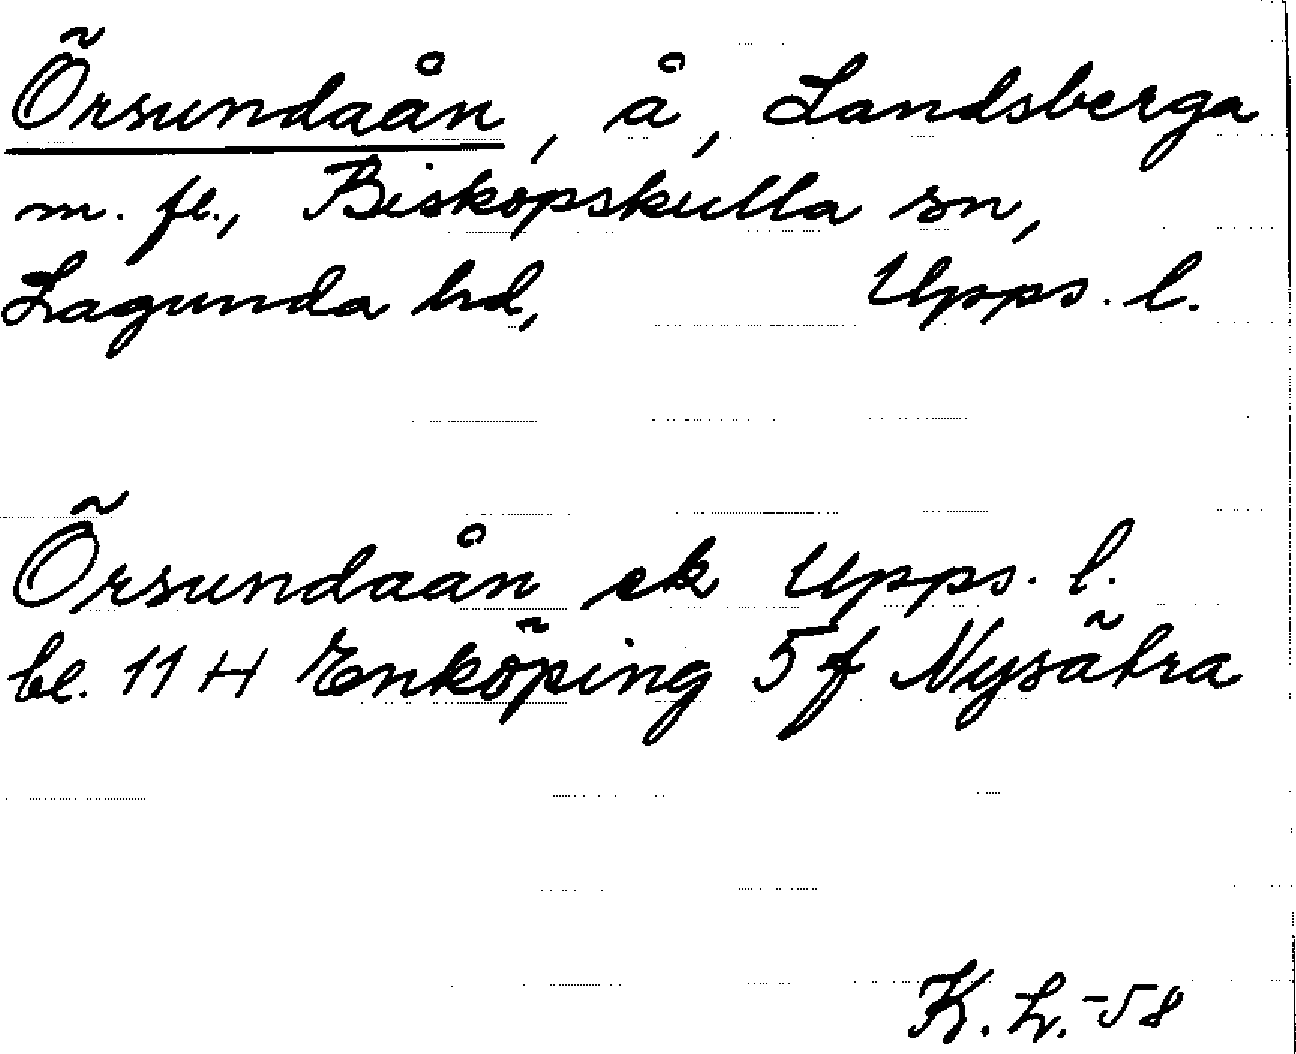 Örsundaån, å, Landsberga
m. fl., Biskopskulla sn,
Lagunda hd, Upps. l.
Örsundaån ek Upps. l.
bl. 11 H Enköping 5 f Nysätra
K. L. -58